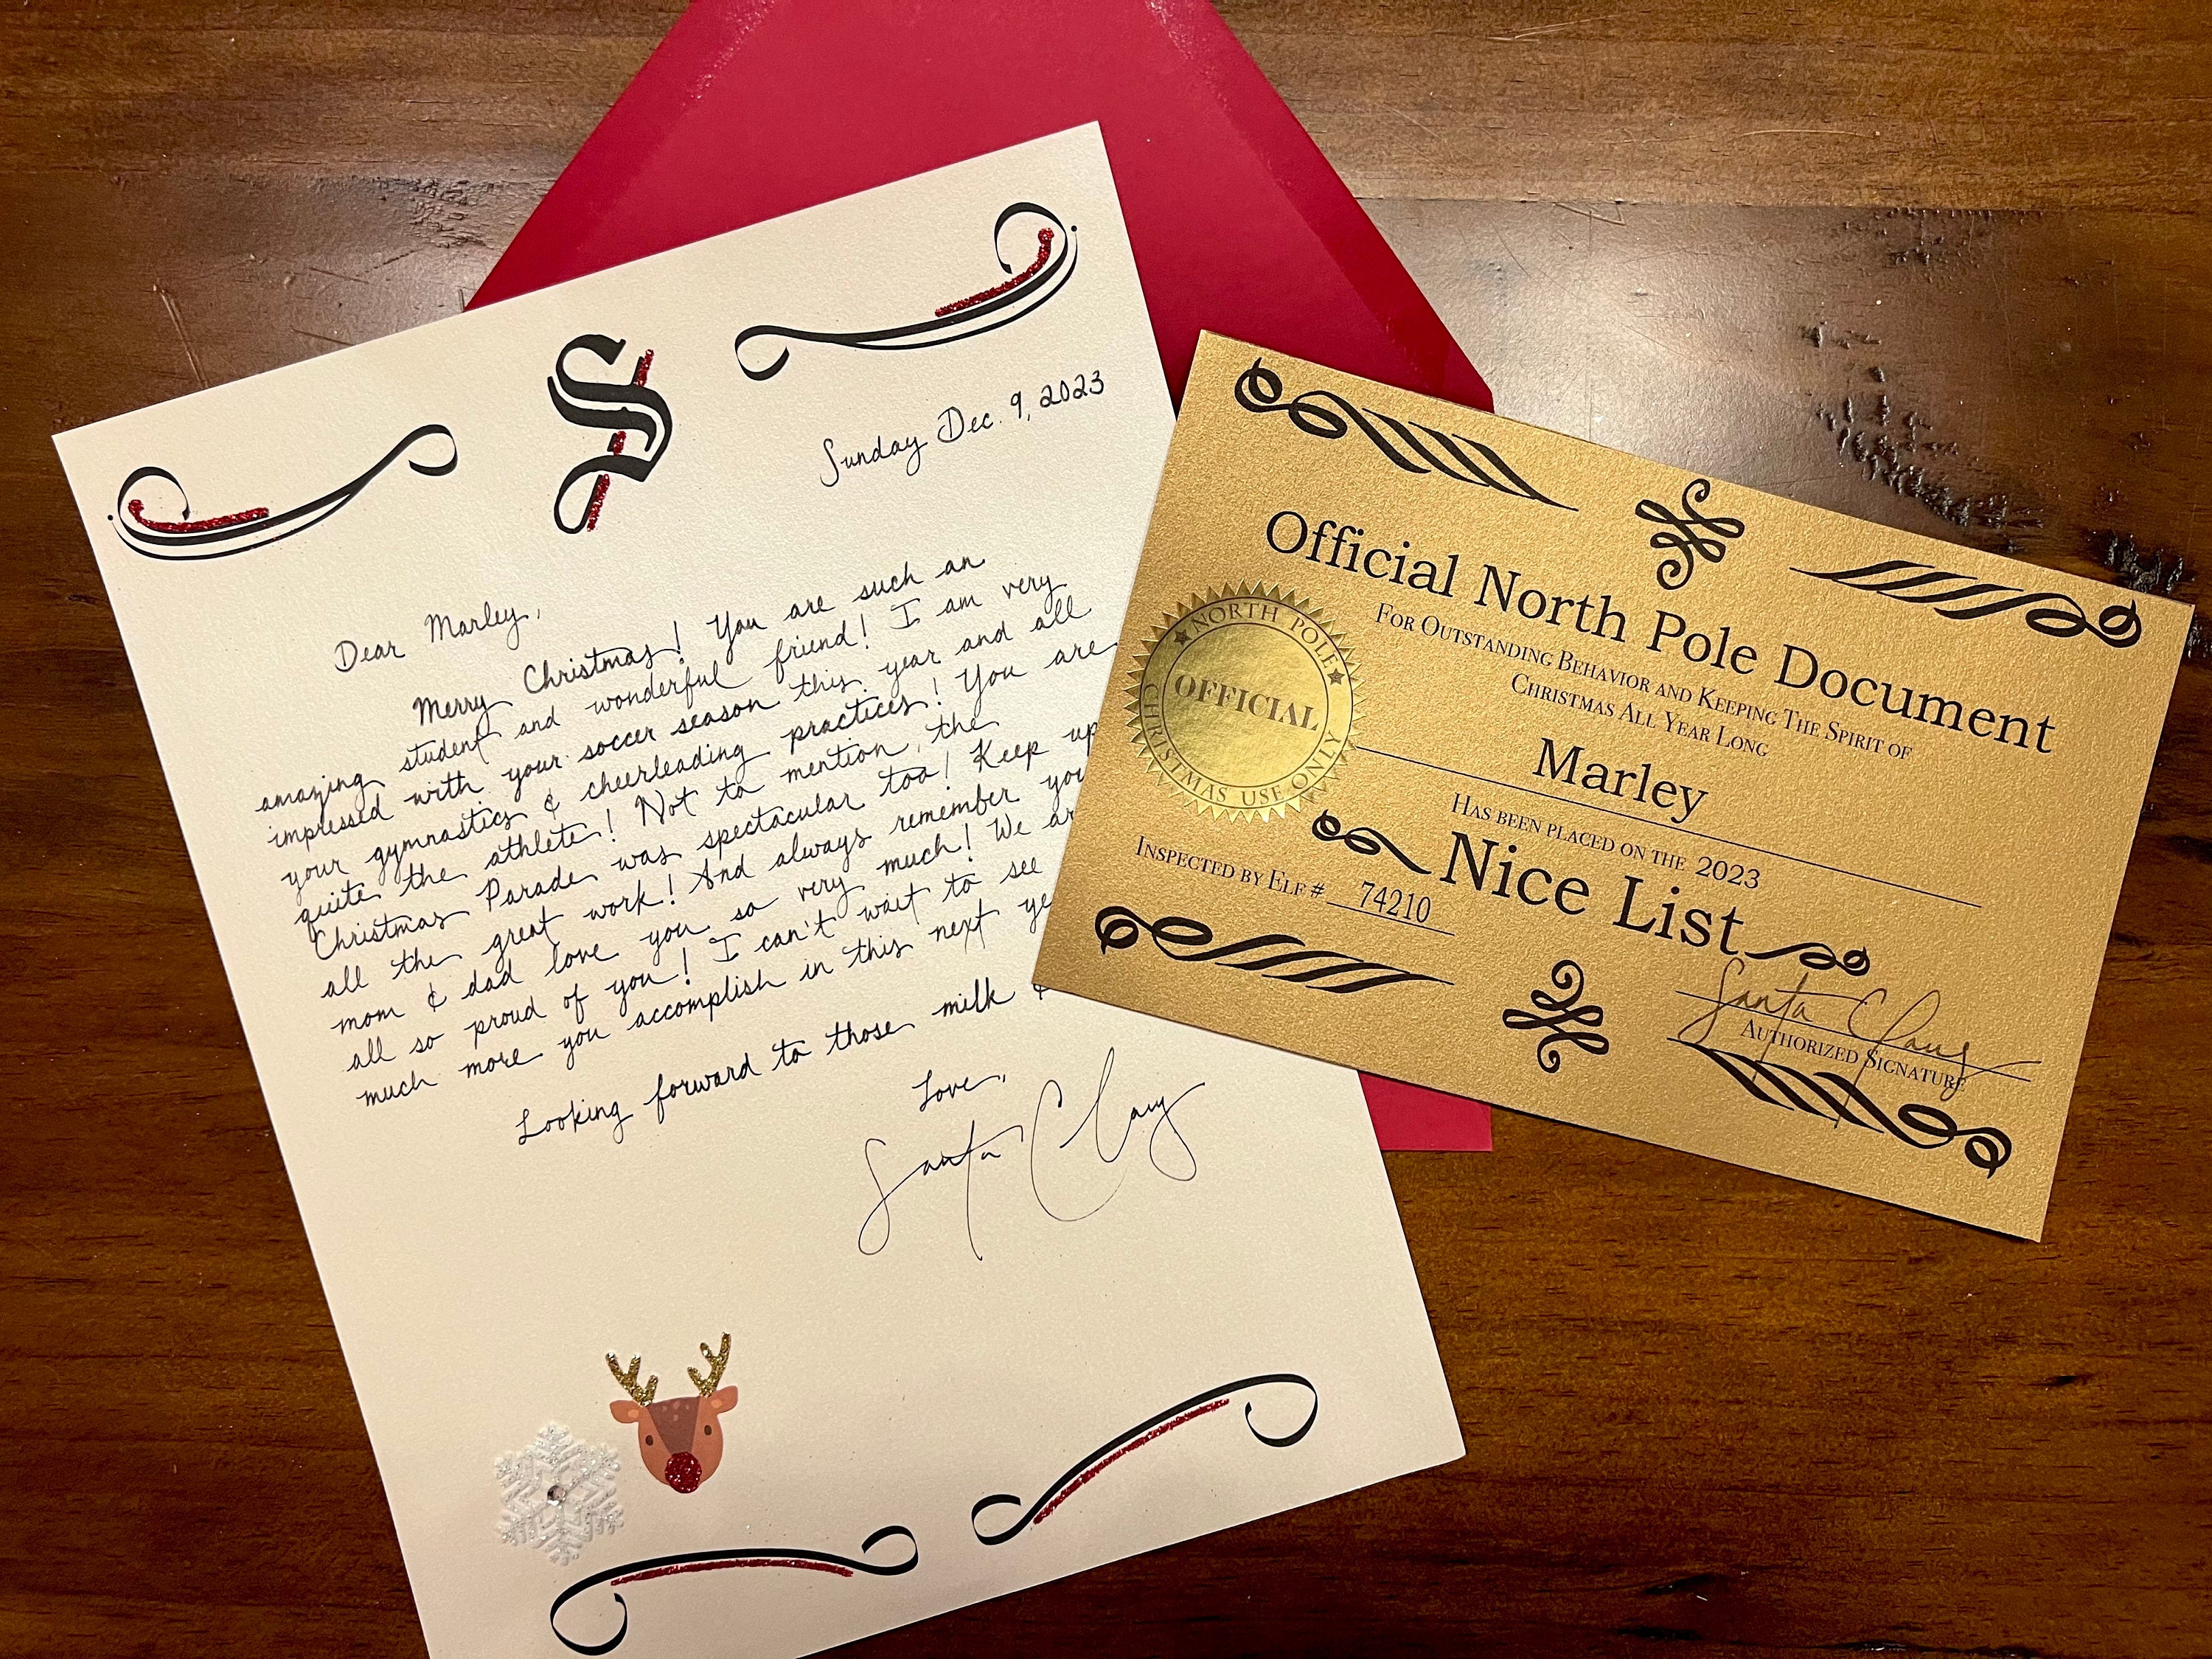 S
Sunday Dec. 9, 2023
Dear Marley,
Merry Christmas! You are such an
amazing student and wonderful friend! I am very
impressed with your soccer season this year and all
your gymnastics & cheerleading practices! You are
quite the athlete! Not to mention, the
Christmas Parade was spectacular too! Keep up
all the great work! And always remember
mom & dad love you so very much! We
all so proud of you! I can't wait to see
much more you accomplish in this next
Looking forward to those milk &
Love,
Santa Claus
Official North Pole Document
For Outstanding Behavior and Keeping The Spirit of
Christmas All Year Long
Marley
Has been placed on the 2023
Nice List
Inspected by Elf # 74210
Santa Claus
Authorized Signature
NORTH POLE
OFFICIAL
CHRISTMAS USE ONLY